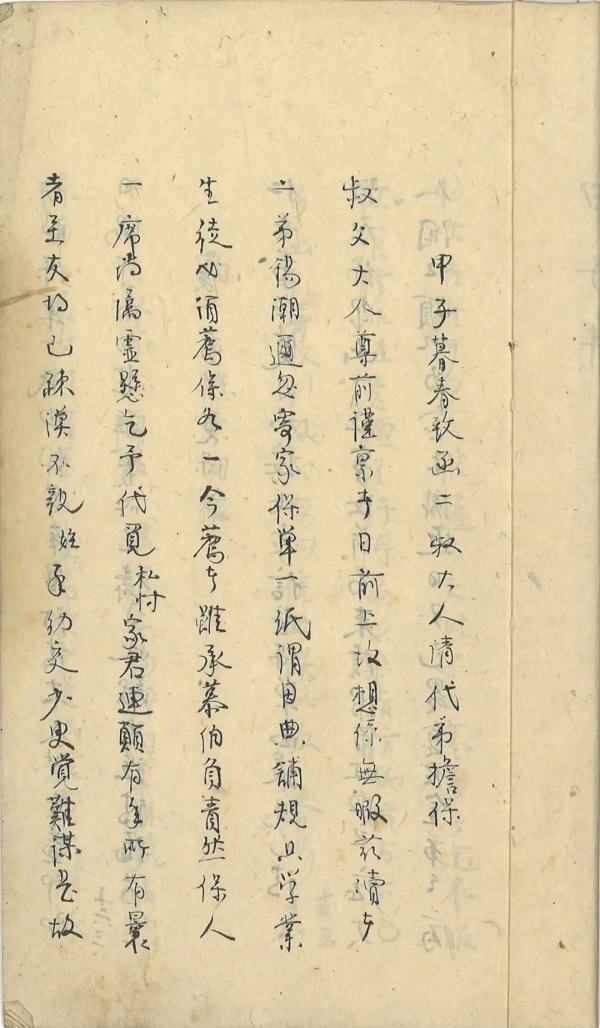 甲子暮春致函二叔大人請代弟擔保
叔父大人尊前謹稟者日前上 想係無暇茲瀆者
二弟錫潮邇忽寄家保單一紙謂因典舖規只學業
生徒必須薦保各一今薦者雖承慕伯負責然保人
一席尚屬虛懸乞予代覓私忖家君連顛有年所有曩
者至友均已疎漠不敦姪年幼交少更覺難謀是故